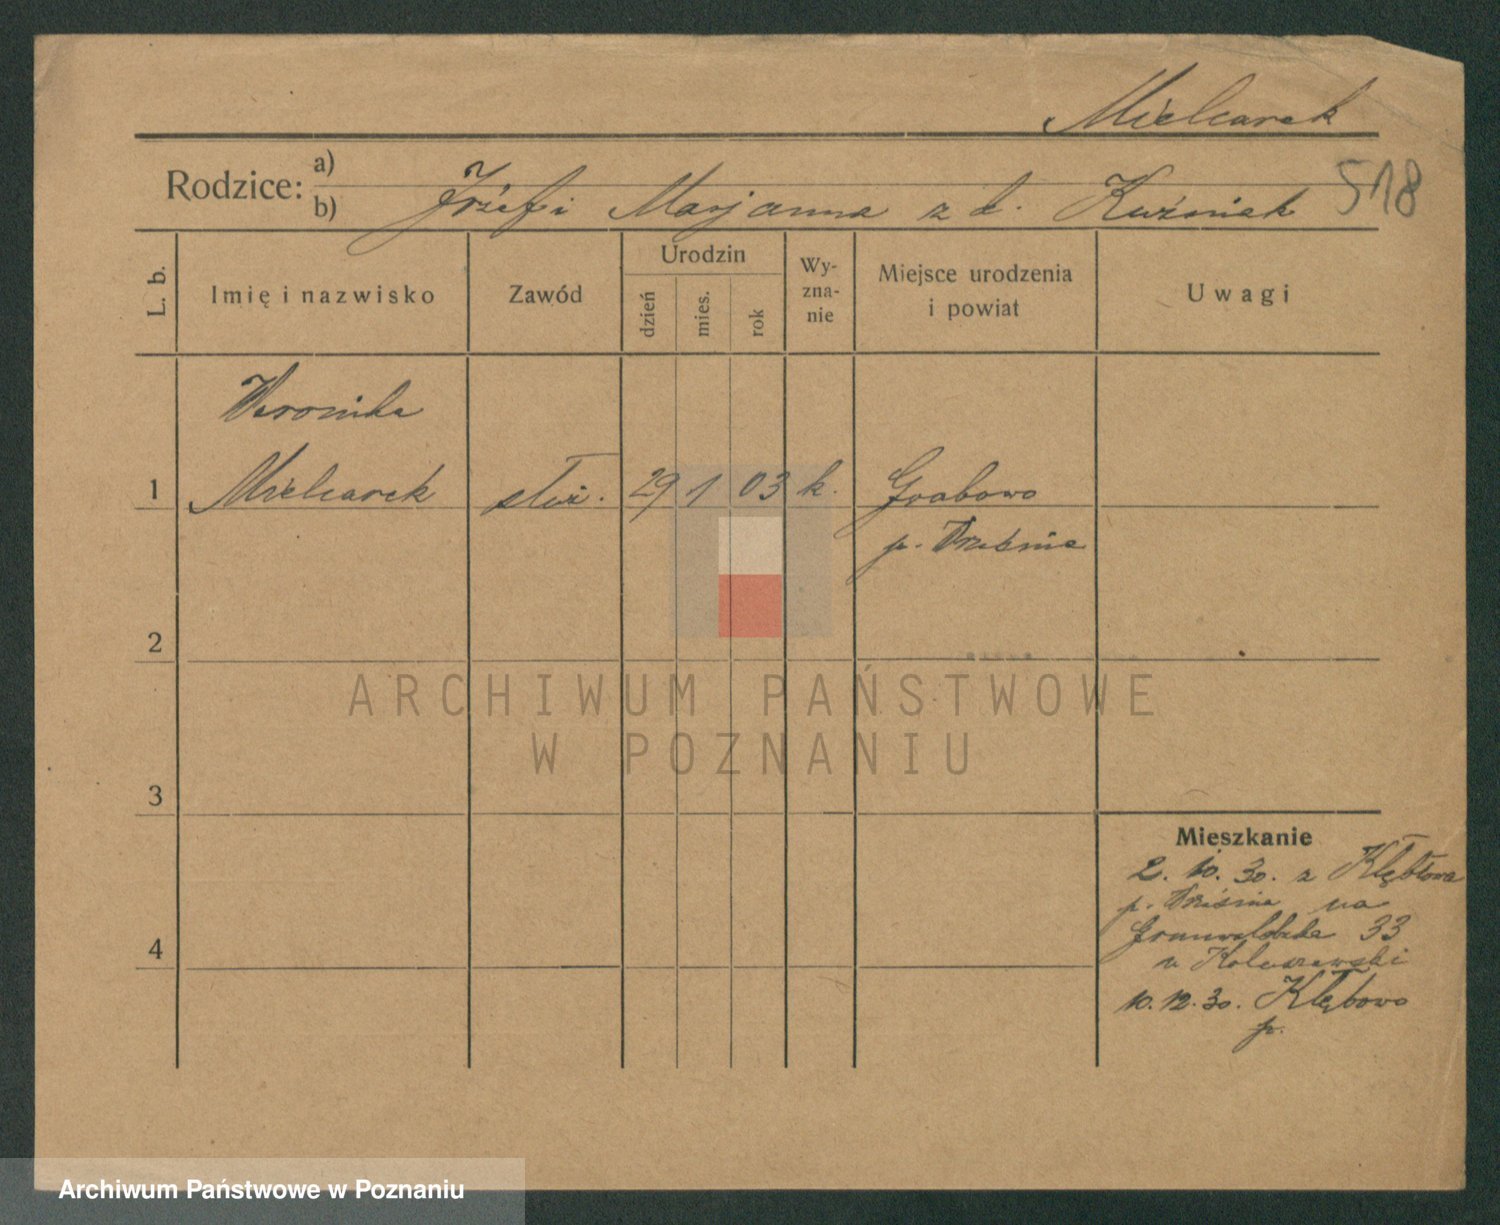 Mielcarek
518
Rodzice: a)
b) Józef i Marjanna z d. Kuźniak
L. b.
Imię i nazwisko
Zawód
Urodzin
dzień
mies.
rok
Wy-
zna-
nie
Miejsce urodzenia
i powiat
Uwagi
Weronika
1 Mielcarek służ. 29 1 03 k. Grabowo
p. Września
2
3
4
Mieszkanie
2. 10. 30. z Kłębowa
p. Września na
Grunwaldzka 33
10. 12. 30. Kłębowo
p.
ARCHIWUM PAŃSTWOWE
W POZNANIU
Archiwum Państwowe w Poznaniu